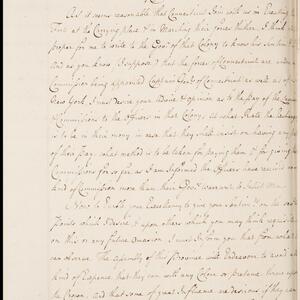 As it seems reasonable that Connecticut Join with us in Erecting a
Fort at the Carrying place & in Marching their forces thither, I think it
proper for me to write to the Govr of that Colony to know his
as you know (I suppose) that the forces of Connecticut are under
Commission being appointed Captain Genl of Connecticut as well as of
New York, I must desire your Opinion as to the pay of the
Commissions to the Officers in that Colony, at what Rate the Exchange
is to be in their money in case that they should insist on having any
of their Pay, what method is to be taken for paying them & for giving
Commissions for so far as I am informed the Officers have received no
kind of Commission more than their Govrs warrants to
I now to Enable your Excellency to give your on the several
Points which I desire & upon others which you may think requisite
on this or any future Occasion I must Inform you that from what I
can observe The assembly of this Province will Endeavour to avoid all
kind of Expence that they can with any Colour or pretence turn upon
the Crown, and that some of great Influence